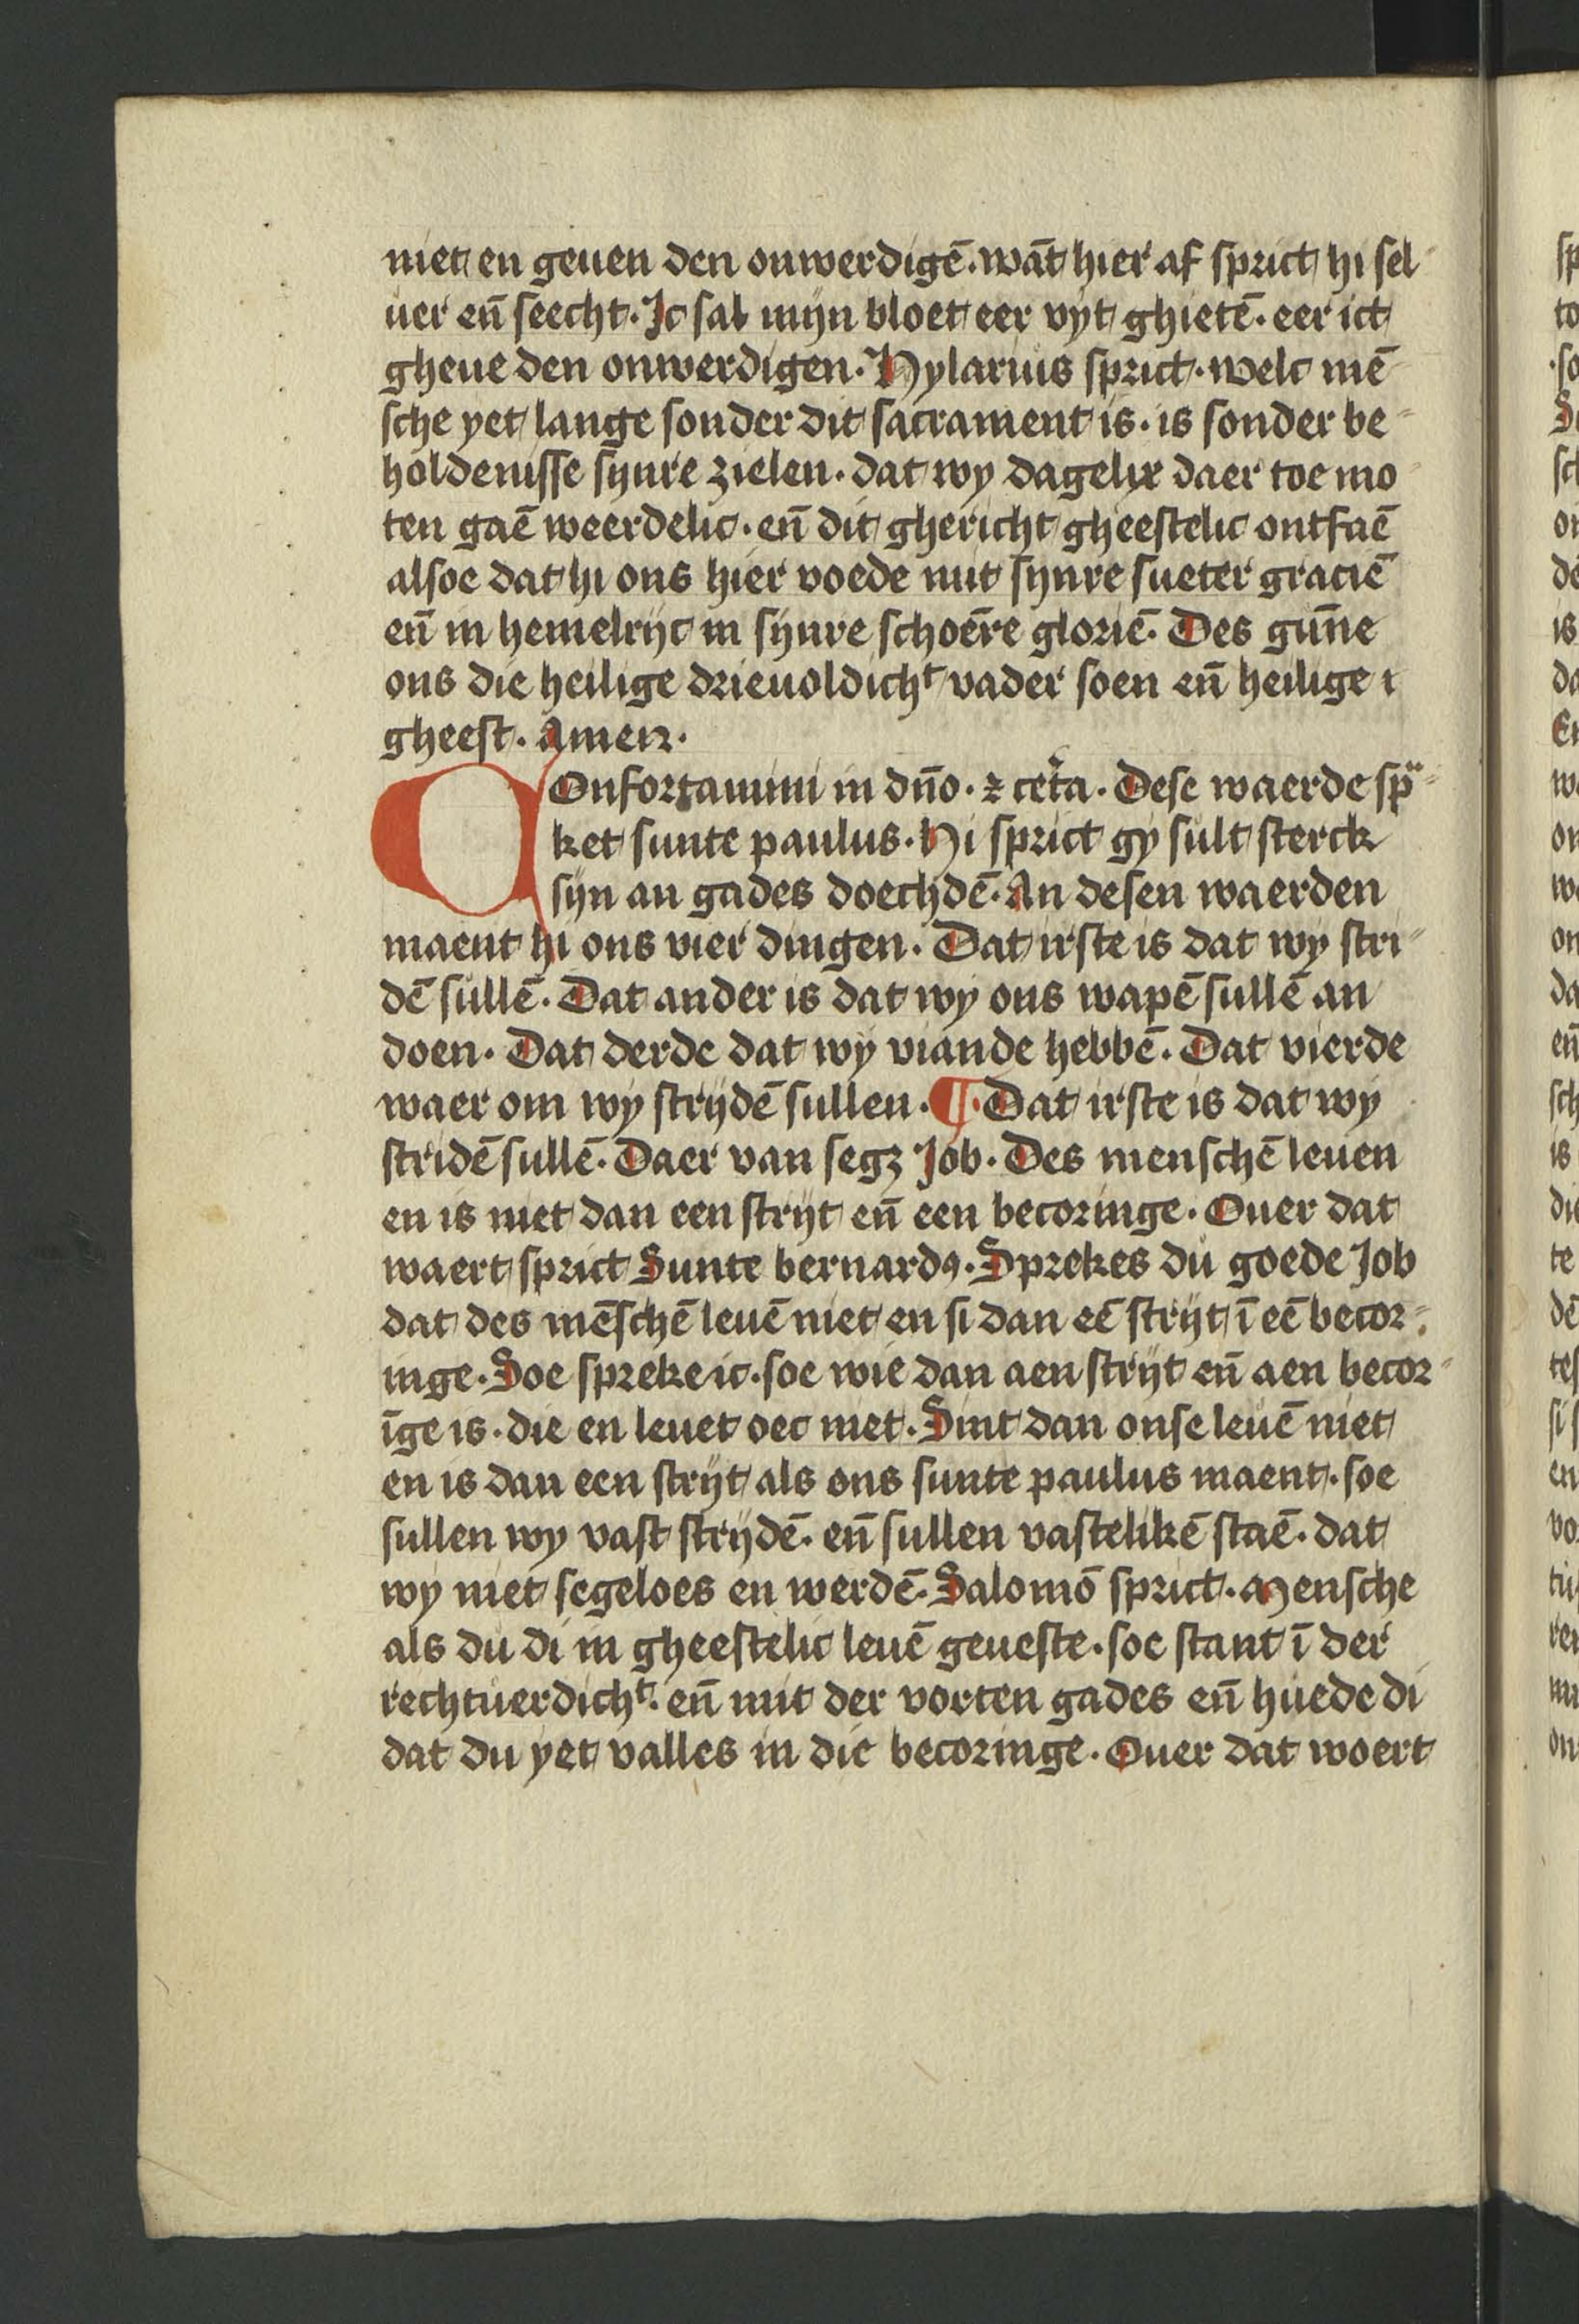 niet en geuen den onwerdigē. wāt hier af sprict hi sel
uer en̄ seecht. Ic sal mijn bloet eer vyt ghietē. eer ict
gheue den onwerdigen. Hylarius sprict. welc mē
sche yet lange sonder dit sacrament is. is sonder be
holdenisse synre zielen. dat wy dagelix daer toe mo
ten gaē weerdelic. en̄ dit ghericht gheestelic ontfaē
alsoe dat hi ons hier voede mit synre sueter graciē
en̄ in hemelrijc in synre schoēre gloriē. Des gūne
ons die heilige drieuoldichᵗ vader soen en̄ heilige
gheest. Amen.
COnfortamini in dn̄o. ⁊ cet̄a. Dese waerde sp̄
ket sunte paulus. Hi sprict gy sult sterck
sijn an gades doechdē. An desen waerden
maent hi ons vier dingen. Dat irste is dat wy stri
dē sullē. Dat ander is dat wy ons wapē sullē an
doen. Dat derde dat wy viande hebbē. Dat vierde
waer om wy strijdē sullen. ¶ Dat irste is dat wy
stridē sullē. Daer van segꝫ Job. Des menschē leuen
en is niet dan een strijt en̄ een becoringe. Ouer dat
waert sprict Sunte bernardꝰ. Sprekes du goede Job
dat des mēschē leuē niet en si dan eē strijt ī eē becor
inge. Soe spreke ic. soe wie dan aen strijt en̄ aen becor
īge is. die en leuet oec niet. Sint dan onse leuē niet
en is dan een strijt als ons sunte paulus maent. soe
sullen wy vast strijdē. en̄ sullen vastelikē staē. dat
wy niet segeloes en werdē. Salomō sprict. Mensche
als du di in gheestelic leuē geueste. soe stant ī der
rechtuerdichᵗ. en̄ mit der vorten gades en̄ huede di
dat du yet valles in die becoringe. Ouer dat woert